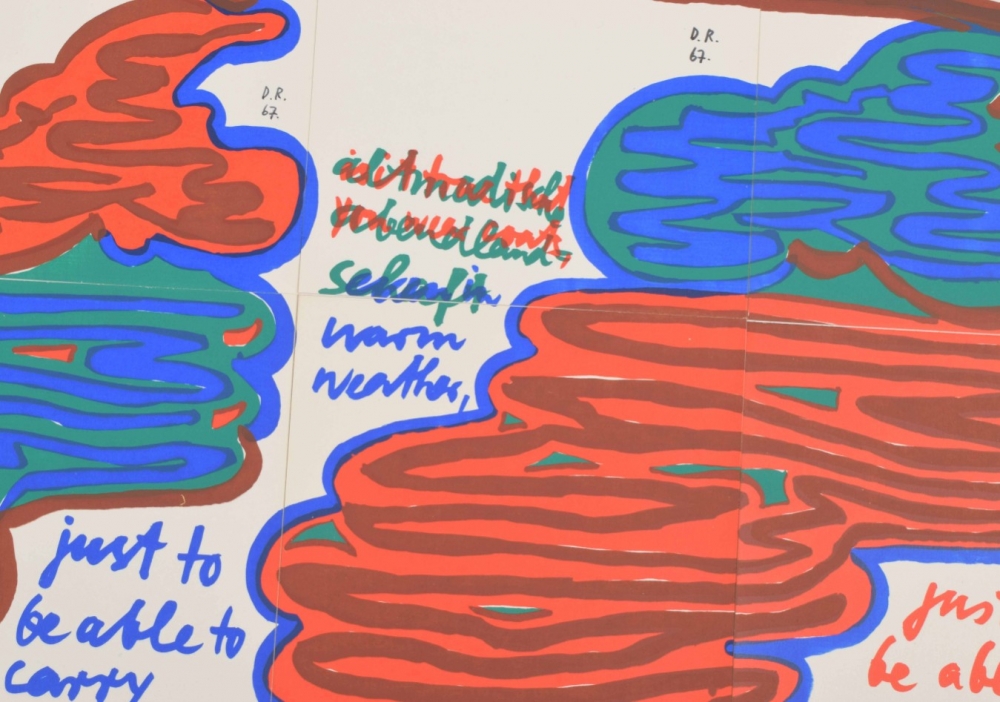 D.R.
67.
D.R.
67.
abendland-
schaft in
warm
weather,
just to
be able to
carry
jus
be abl